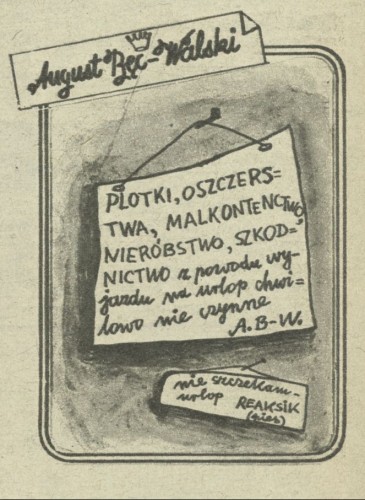 August Bęc-Walski
PLOTKI, OSZCZERS=
TWA, MALKONTENCTWO
NIERÓBSTWO, SZKOD=
NICTWO z powodu wy-
jazdu na urlop chwi=
lowo nie czynne
A.B-W.
nie szczekam-
urlop REAKSIK
(pies)